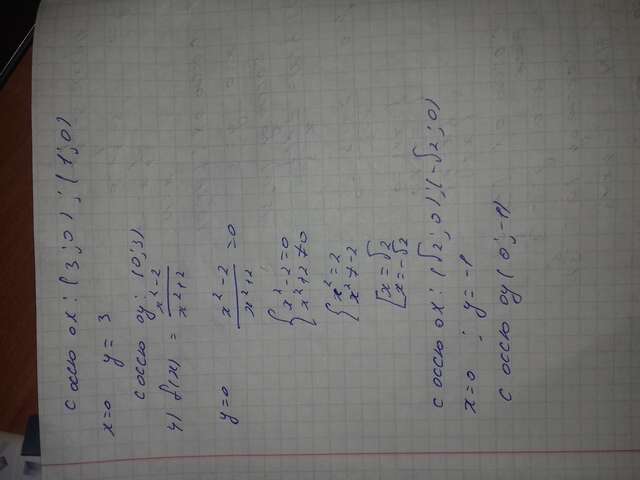 с осью ох: (3;0); (1;0)
x=0 y= 3
с осью оу: (0;3)
4) f(x) = \frac{x²-2}{x²+2}
y=0 \frac{x²-2}{x²+2} =0
{x²-2=0
x²+2≠0
{x²=2
x²≠-2
[x=√2
x=-√2
с осью ох: (√2;0);(-√2;0)
x=0 ; y=-1
с осью оу (0;-1)